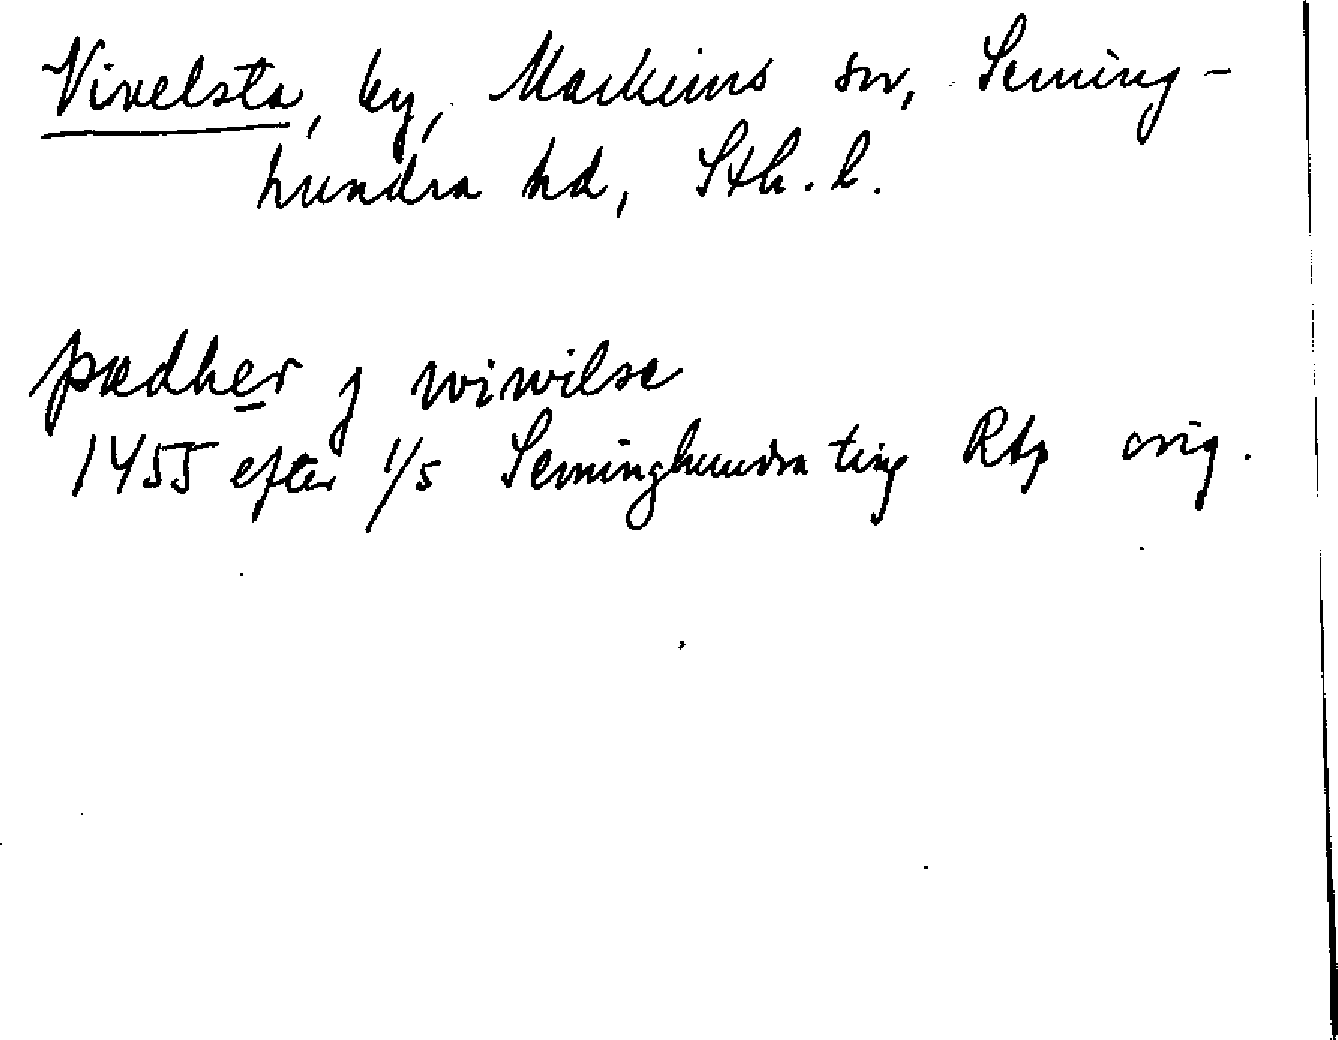 Vivelsta, by, Markims sn, Seming-
hundra hd, Sth. l.
pædher j wiwilse
1455 efter 1/5 Seminghundra ting Rap orig.